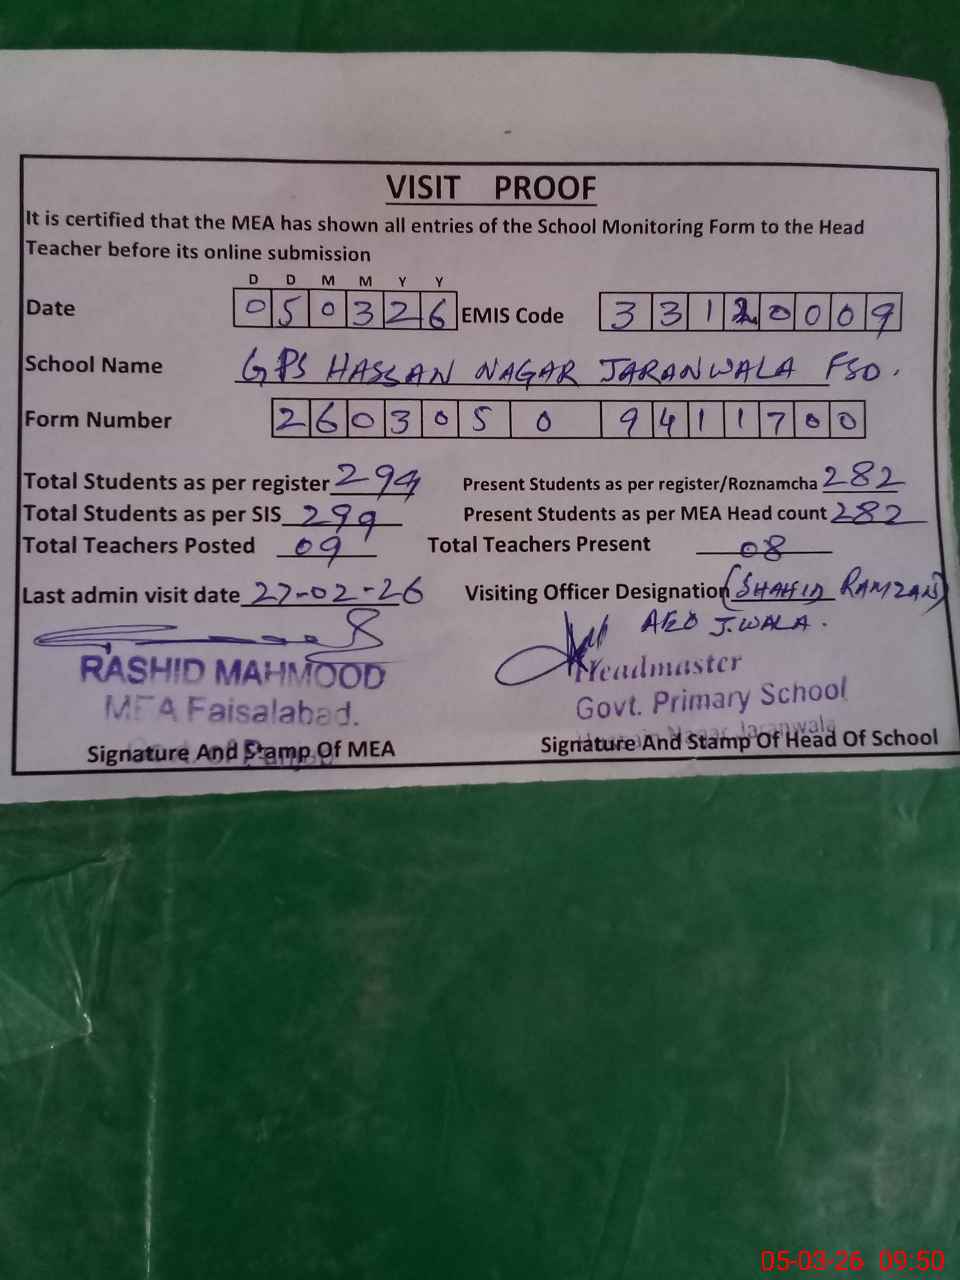 VISIT PROOF
It is certified that the MEA has shown all entries of the School Monitoring Form to the Head
Teacher before its online submission
D D M M Y Y
Date 0 5 0 3 2 6 EMIS Code 3 3 1 2 0 0 0 9
School Name GPS HASSAN NAGAR JARANWALA FSD.
Form Number 2 6 0 3 0 5 0 9 4 1 1 7 0 0
Total Students as per register 294 Present Students as per register/Roznamcha 282
Total Students as per SIS 299 Present Students as per MEA Head count 282
Total Teachers Posted 09 Total Teachers Present 08
Last admin visit date 27-02-26 Visiting Officer Designation (SHAHID RAMZAN)
AEO J.WALA.
RASHID MAHMOOD
MEA Faisalabad.
Headmaster
Govt. Primary School
Nagar Jaranwala
Signature And Stamp Of MEA Signature And Stamp Of Head Of School
05-03-26 09:50